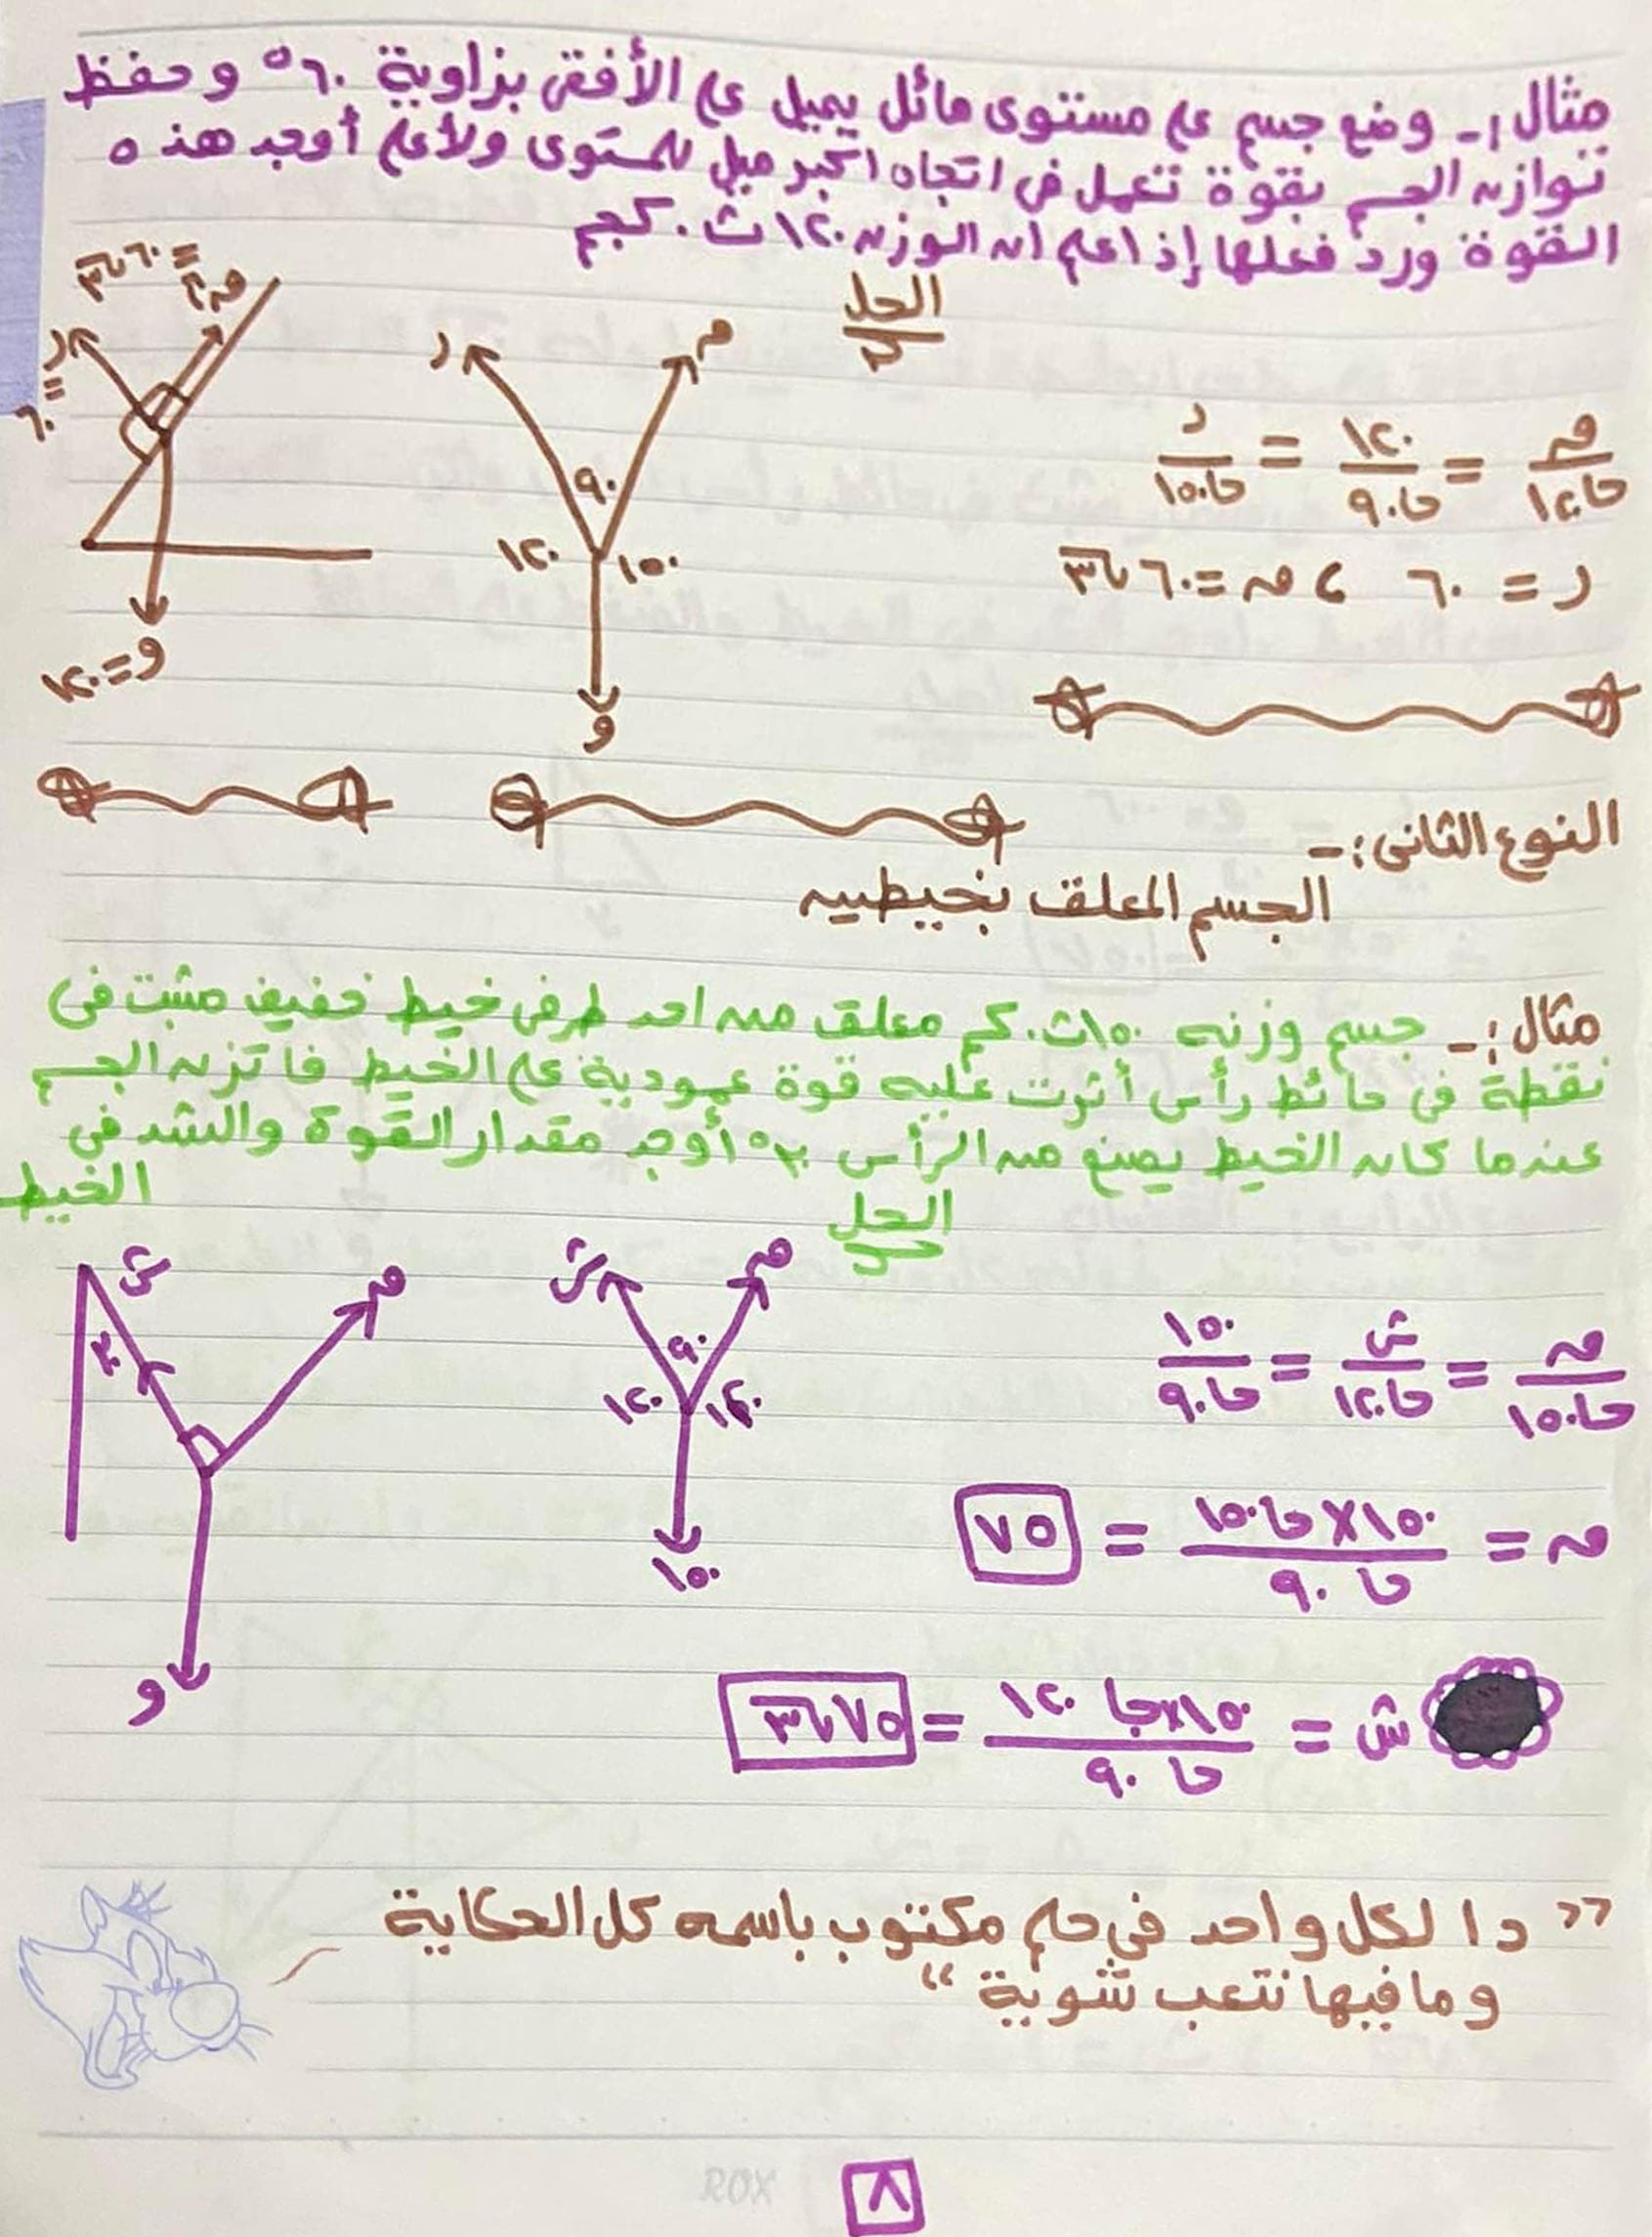 مثال :- وضع جسم على مستوى مائل يميل على الأفقى بزاوية ٦٠° وحفظ
توازن الجسم بقوة تعمل فى اتجاه اكبر ميل للمستوى ولأعلى أوجد هذه
القوة ورد فعلها إذا علم ان الوزن ١٢٠ ث.كجم
الحل
ق = ٦٠√٣
ر = ٦٠
و = ١٢٠
ق ر
٩٠
١٢٠ ١٥٠
و
ق/حا١٢٠ = ١٢٠/حا٩٠ = ر/حا١٥٠
ر = ٦٠ ، ق = ٦٠√٣
النوع الثانى :-
الجسم المعلق بخيطين
مثال :- جسم وزنه ١٥٠ث.كم معلق من احد طرفى خيط خفيف مثبت فى
نقطة فى حائط رأسى أثرت عليه قوة عمودية على الخيط فاتزن الجسم
عندما كان الخيط يصنع من الرأسى ٣٠° أوجد مقدار القوة والشد فى
الخيط
الحل
ش ق
٣٠
و
ش ق
٩٠
١٢٠
١٥٠
ق/حا١٥٠ = ش/حا١٢٠ = ١٥٠/حا٩٠
ق = ١٥٠×حا١٥٠/حا٩٠ = ٧٥
ش = ١٥٠×جا١٢٠/حا٩٠ = ٧٥√٣
" دا لكل واحد في حلم مكتوب باسمه كل الحكاية
وما فيها نتعب شوية "
ROX
٨